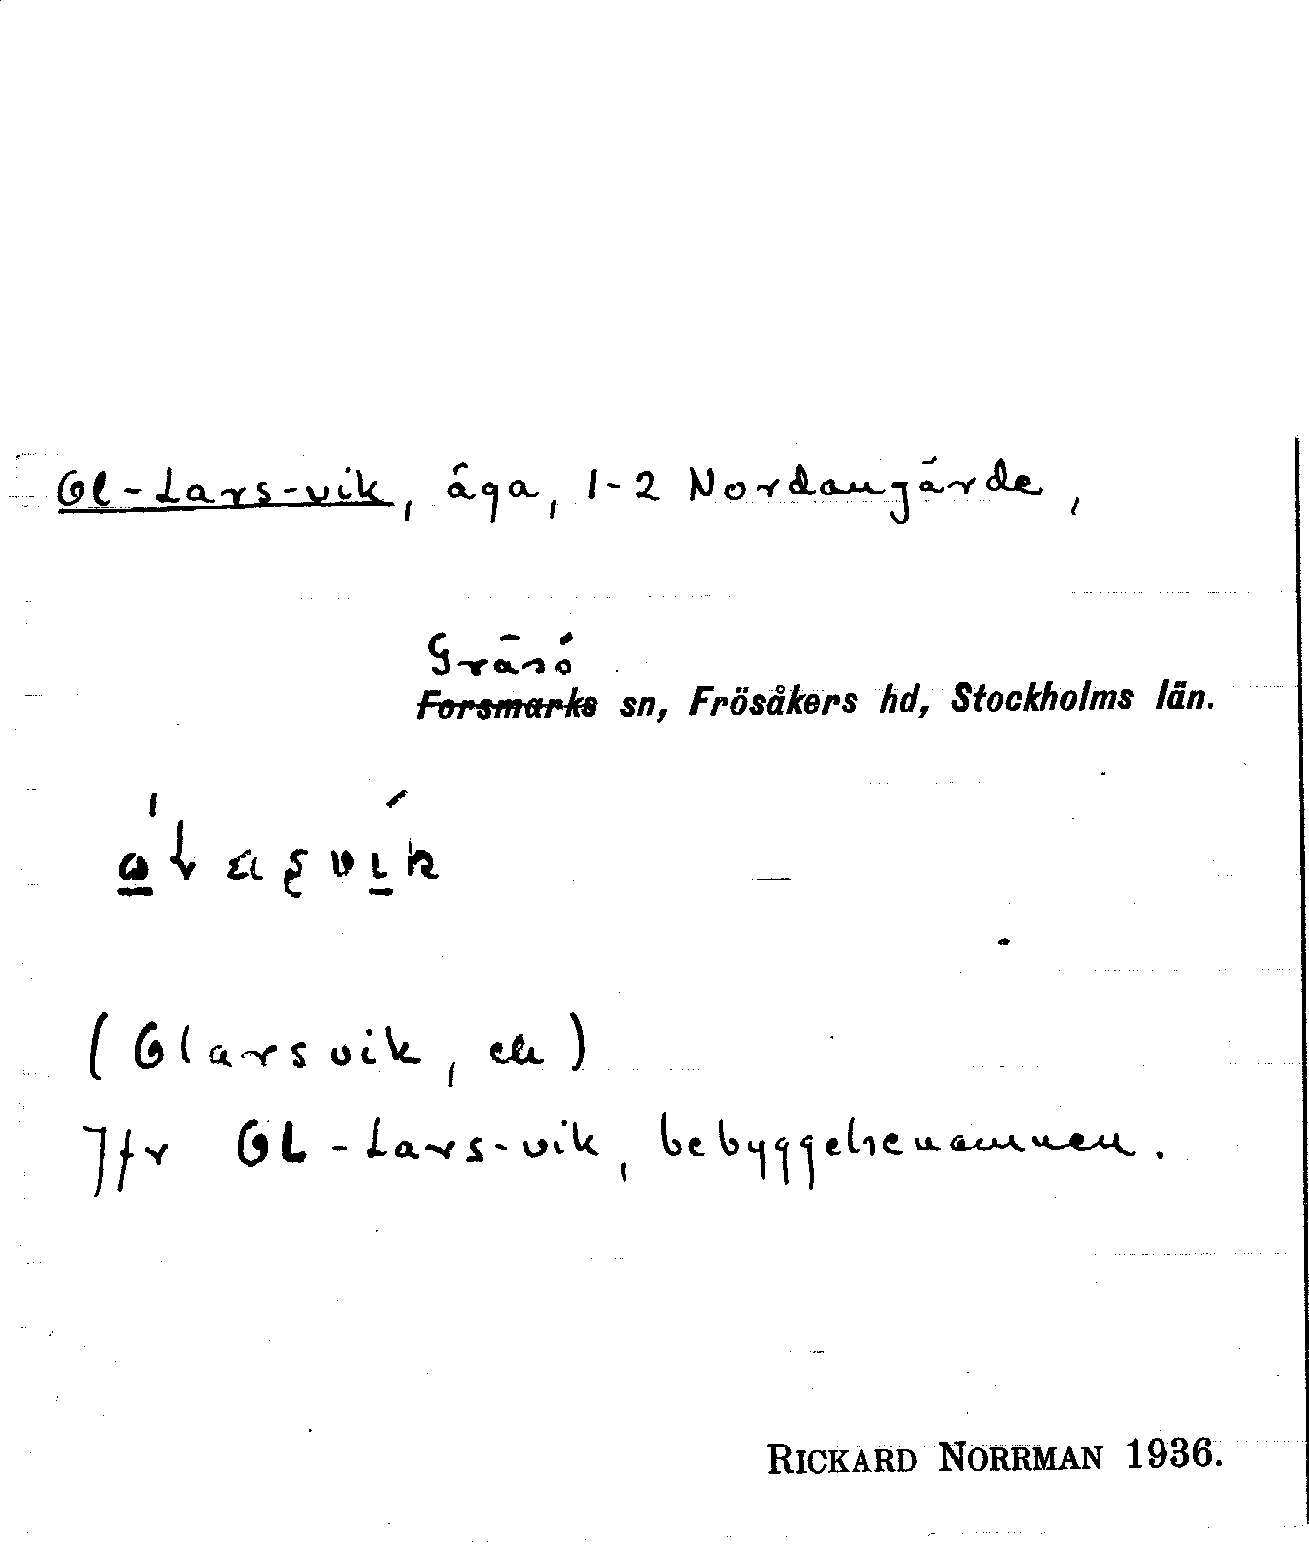 Ol-Lars-vik, äga, 1-2 Nordangärde,
Gräsö
Forsmarks sn, Frösåkers hd, Stockholms län.
(Olarsvik, ek)
Jfr Ol-Lars-vik, bebyggelsenamnen.
RICKARD NORRMAN 1936.